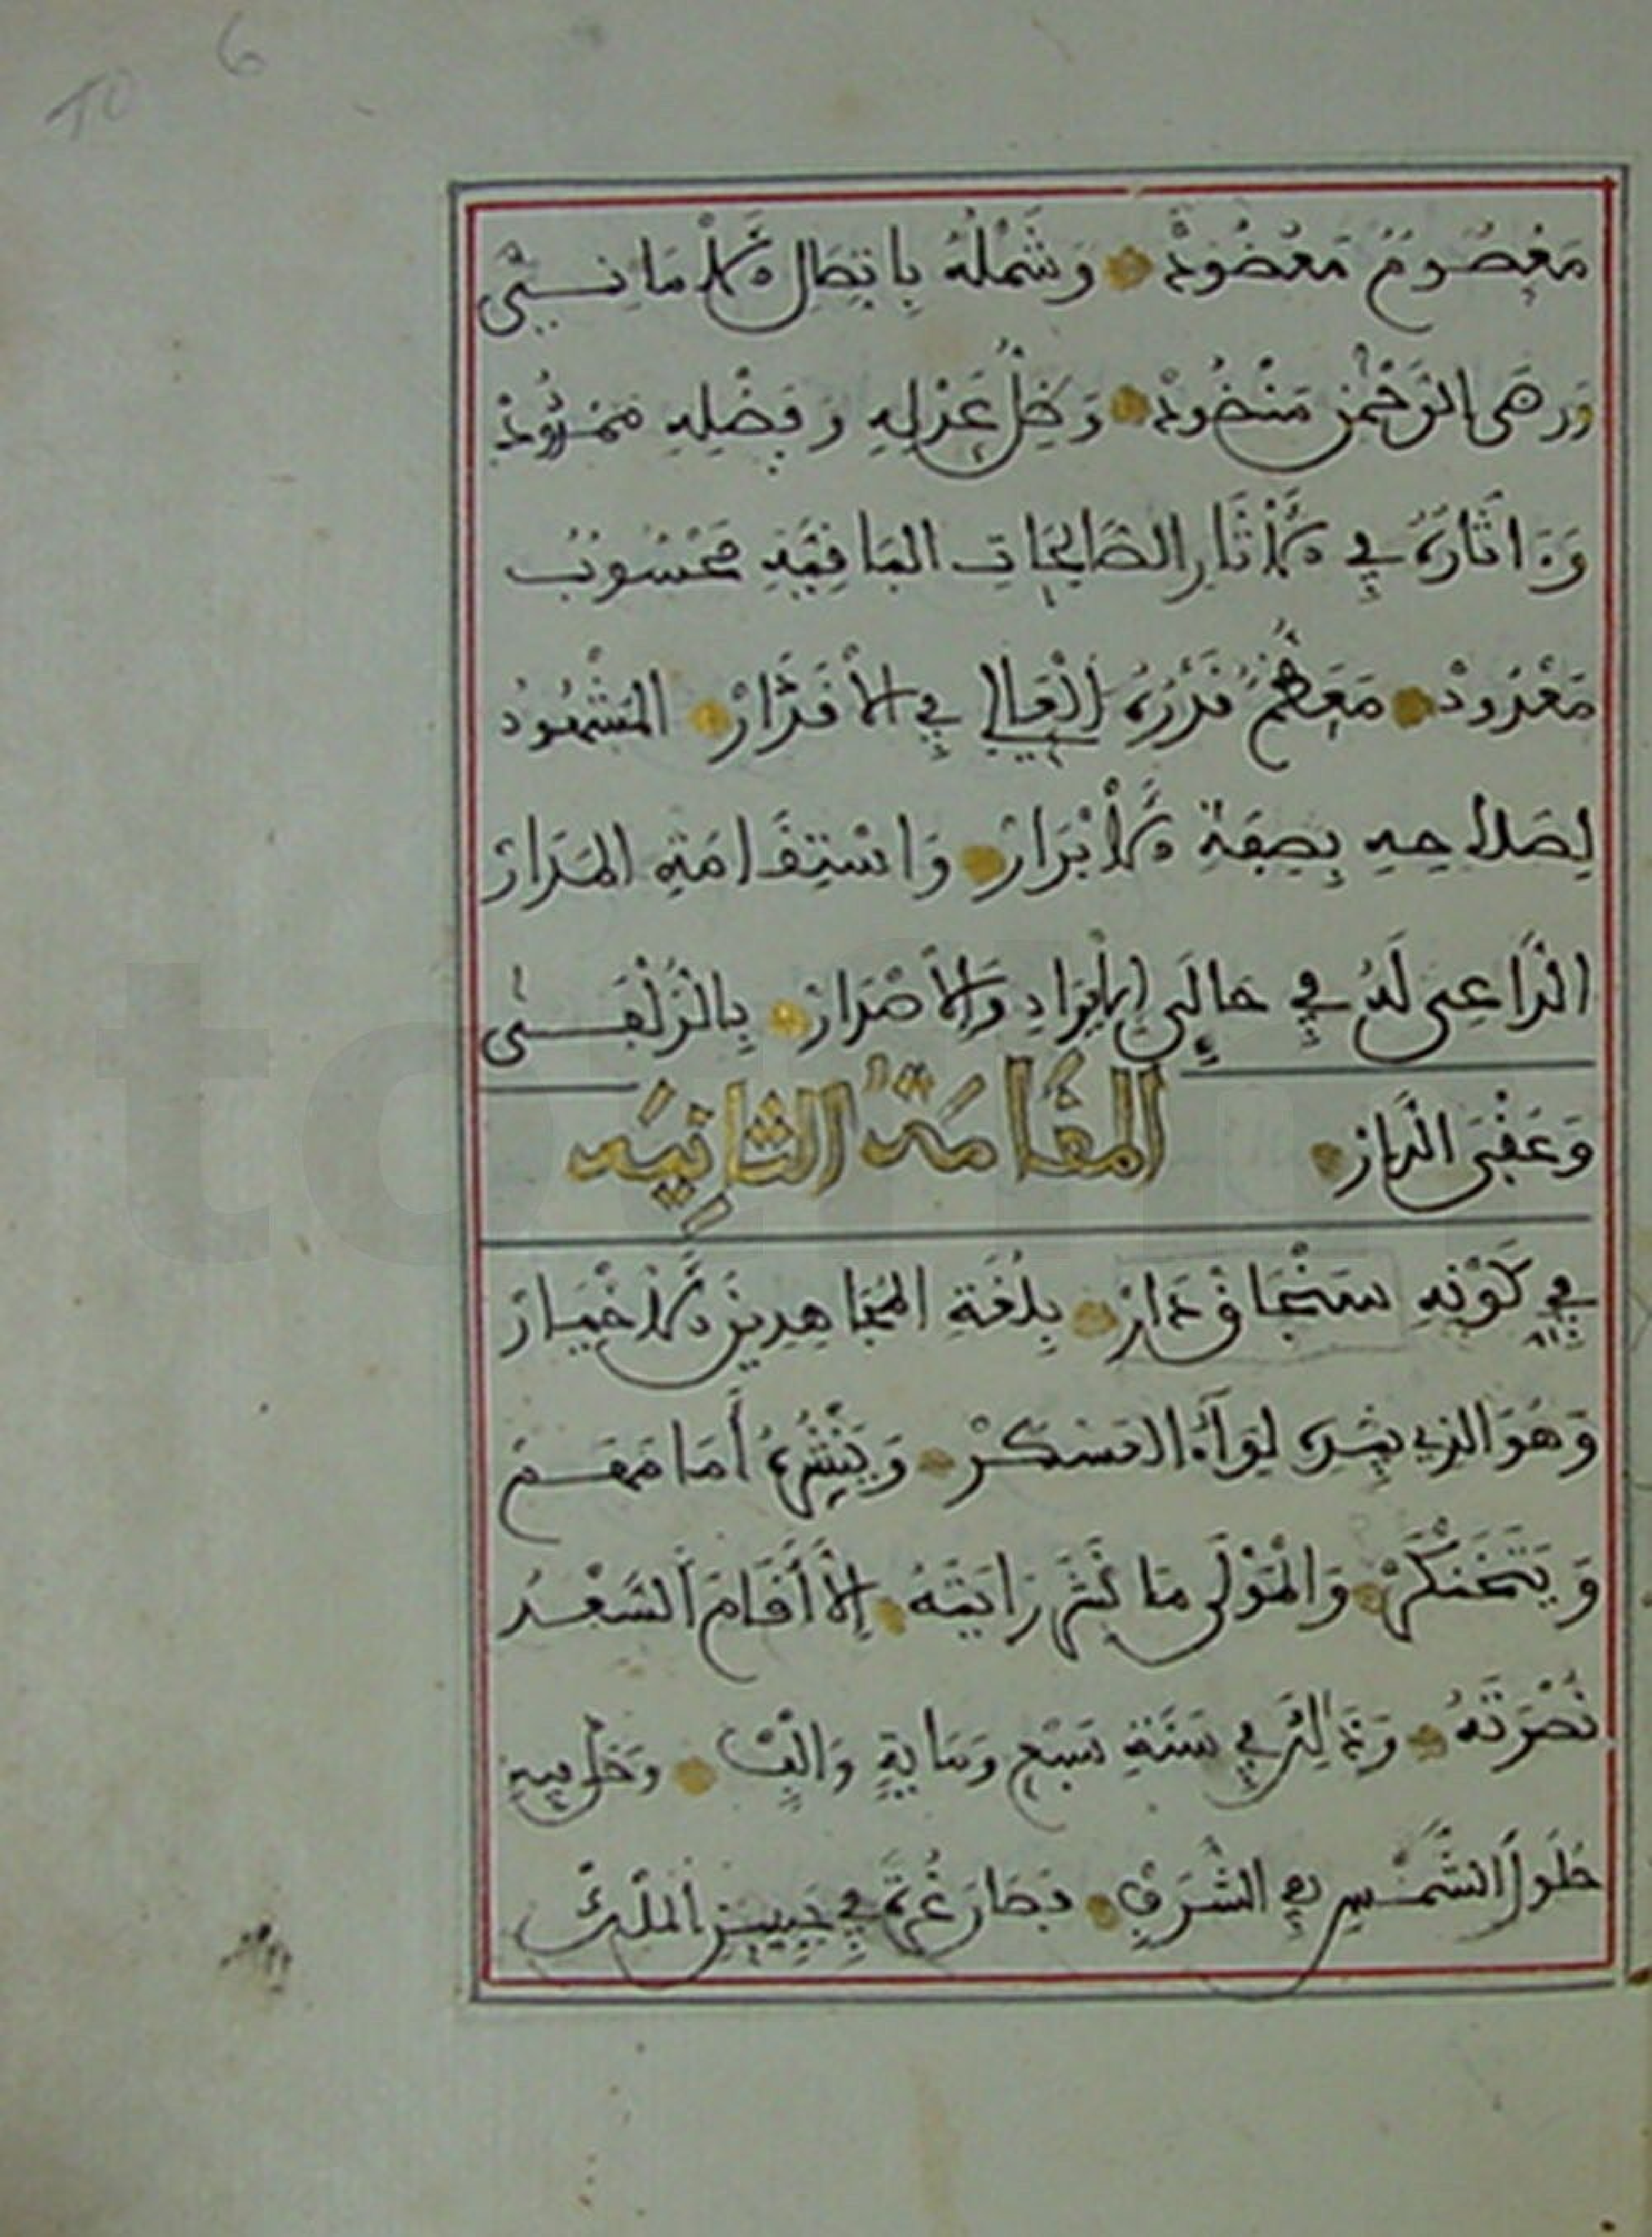 6
TO
مَعْصُومٌ مَعْضُودْ وَشَمْلُهُ بِاتِّصَالِ الْأَمَانِي
وَرِضَى الرَّحْمٰنِ مَنْضُودْ وَظِلُّ عَدْلِهِ وَفَضْلِهِ مَمْدُودْ
وَءَاثَارُهُ فِي الْآثَارِ الصَّالِحَاتِ الْبَاقِيَةِ مَحْسُوبٌ
مَعْدُودْ مُعَظِّمُ قَدْرِهِ الْعَالِي فِي الْأَقْدَارْ الْمَشْهُودُ
لِصَلَاحِهِ بِصِفَةِ الْأَبْرَارْ وَاسْتِقَامَةِ الْمَدَارْ
الدَّاعِي لَهُ فِي حَالَيِ الْإِيرَادِ وَالْإِصْدَارْ بِالزُّلْفَى
وَعُقْبَى الدَّارْ
الْمَقَامَةُ الثَّانِيَه
فِي كَوْنِهِ سَنْجَاقْ دَارْ بِلُغَةِ الْمُجَاهِدِينَ الْأَخْيَارْ
وَهُوَ الَّذِي يَشِيدُ لِوَاءَ الْعَسْكَرْ وَيَنْشُرُهُ أَمَامَهُمْ
وَالْمَوْلَى مَا نَشَرَ رَايَتَهُ إِلَّا أَقَامَ السَّعْدُ
نُصْرَتَهُ وَذَلِكَ فِي سَنَةِ سَبْعٍ وَمِايَةٍ وَأَلْفٍ
حُلُولَ الشَّمْسِ فِي الشَّرَفِ فَصَارَ غُرَّةً فِي جَبِينِ الْمُلْكِ